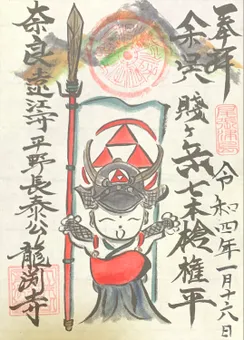 奉拝
余呉 賤ヶ岳七本槍 権平
令和四年一月十六日
奈良 遠江守平野長泰公 龍渕寺